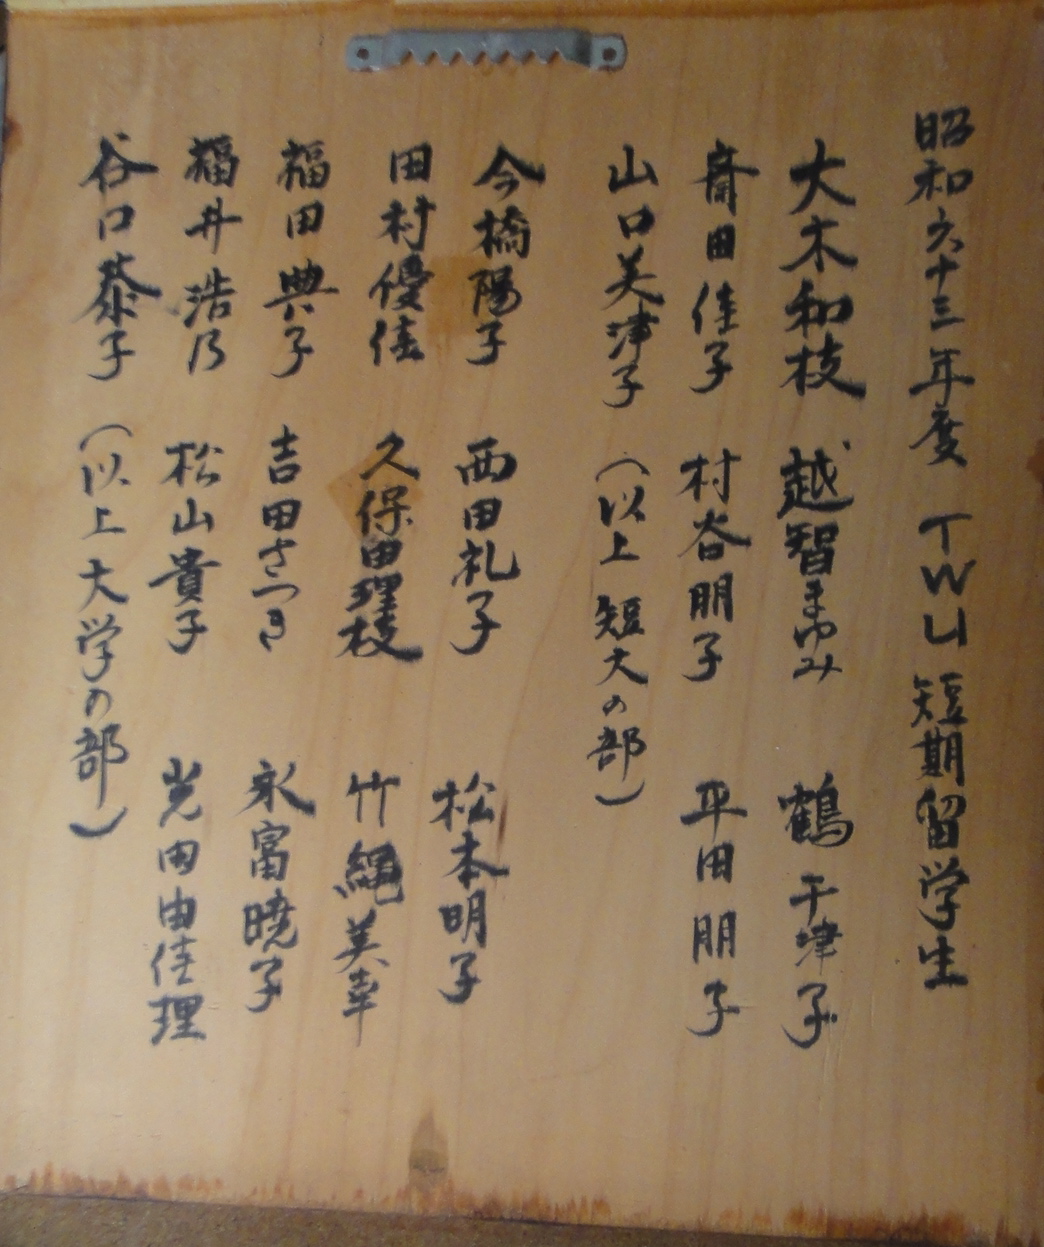 昭和六十三年度 TWU 短期留学生
大木和枝 越智まゆみ 鶴千津子
斎田佳子 村谷朋子 平田朋子
山口美津子 (以上 短大の部)
今橋陽子 西田礼子 松本明子
田村優佳 久保田理枝 竹縄美幸
福田典子 吉田さつき 永富暁子
福井浩乃 松山貴子 光田由佳理
谷口泰子 (以上 大学の部)